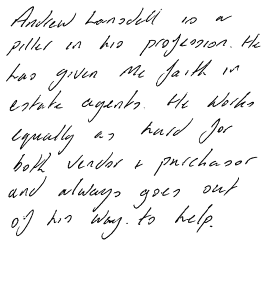 Andrew Lansdell is a
piller in his profession. He
has given me faith in
estate agents. He works
equally as hard for
both vendor + purchasor
and always goes out
of his way. to help.